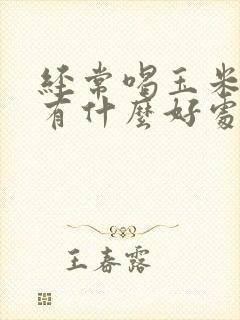 經常喝玉米
有什麼好處
王春露